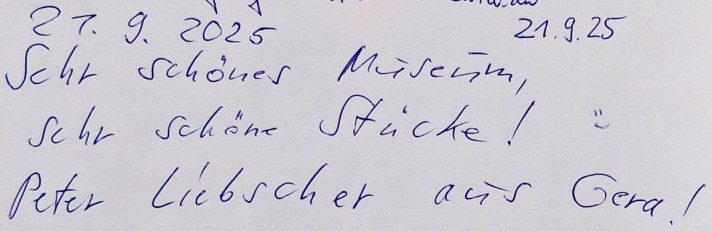 21. 9. 2025 21.9.25
Sehr schönes Museum,
sehr schöne Stücke! :)
Peter Liebscher aus Gera!